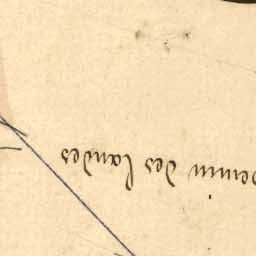 hemin des landes